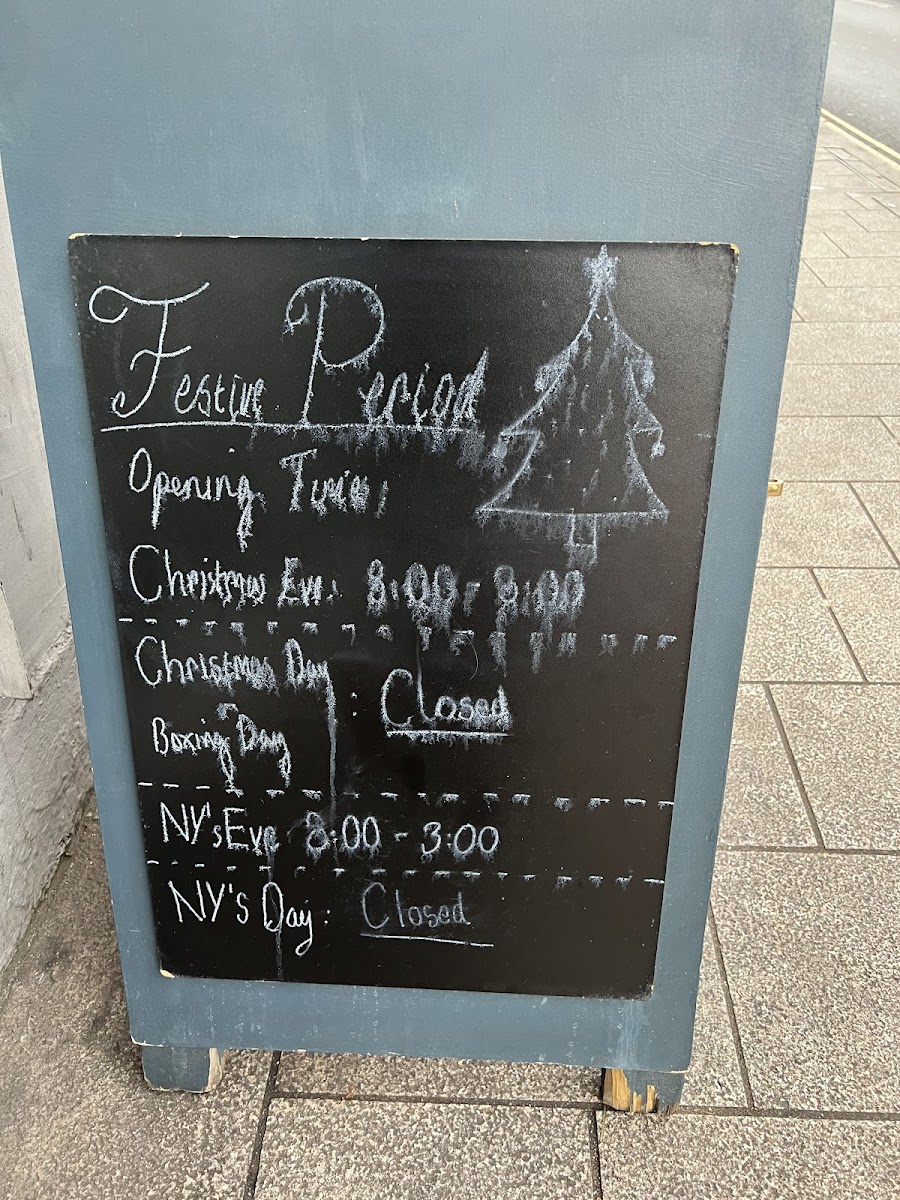 Festive Period
Opening Times
Christmas Eve: 8:00 - 3:00
Christmas Day
: Closed
Boxing Day
NY's Eve 8:00 - 3:00
NY's Day: Closed